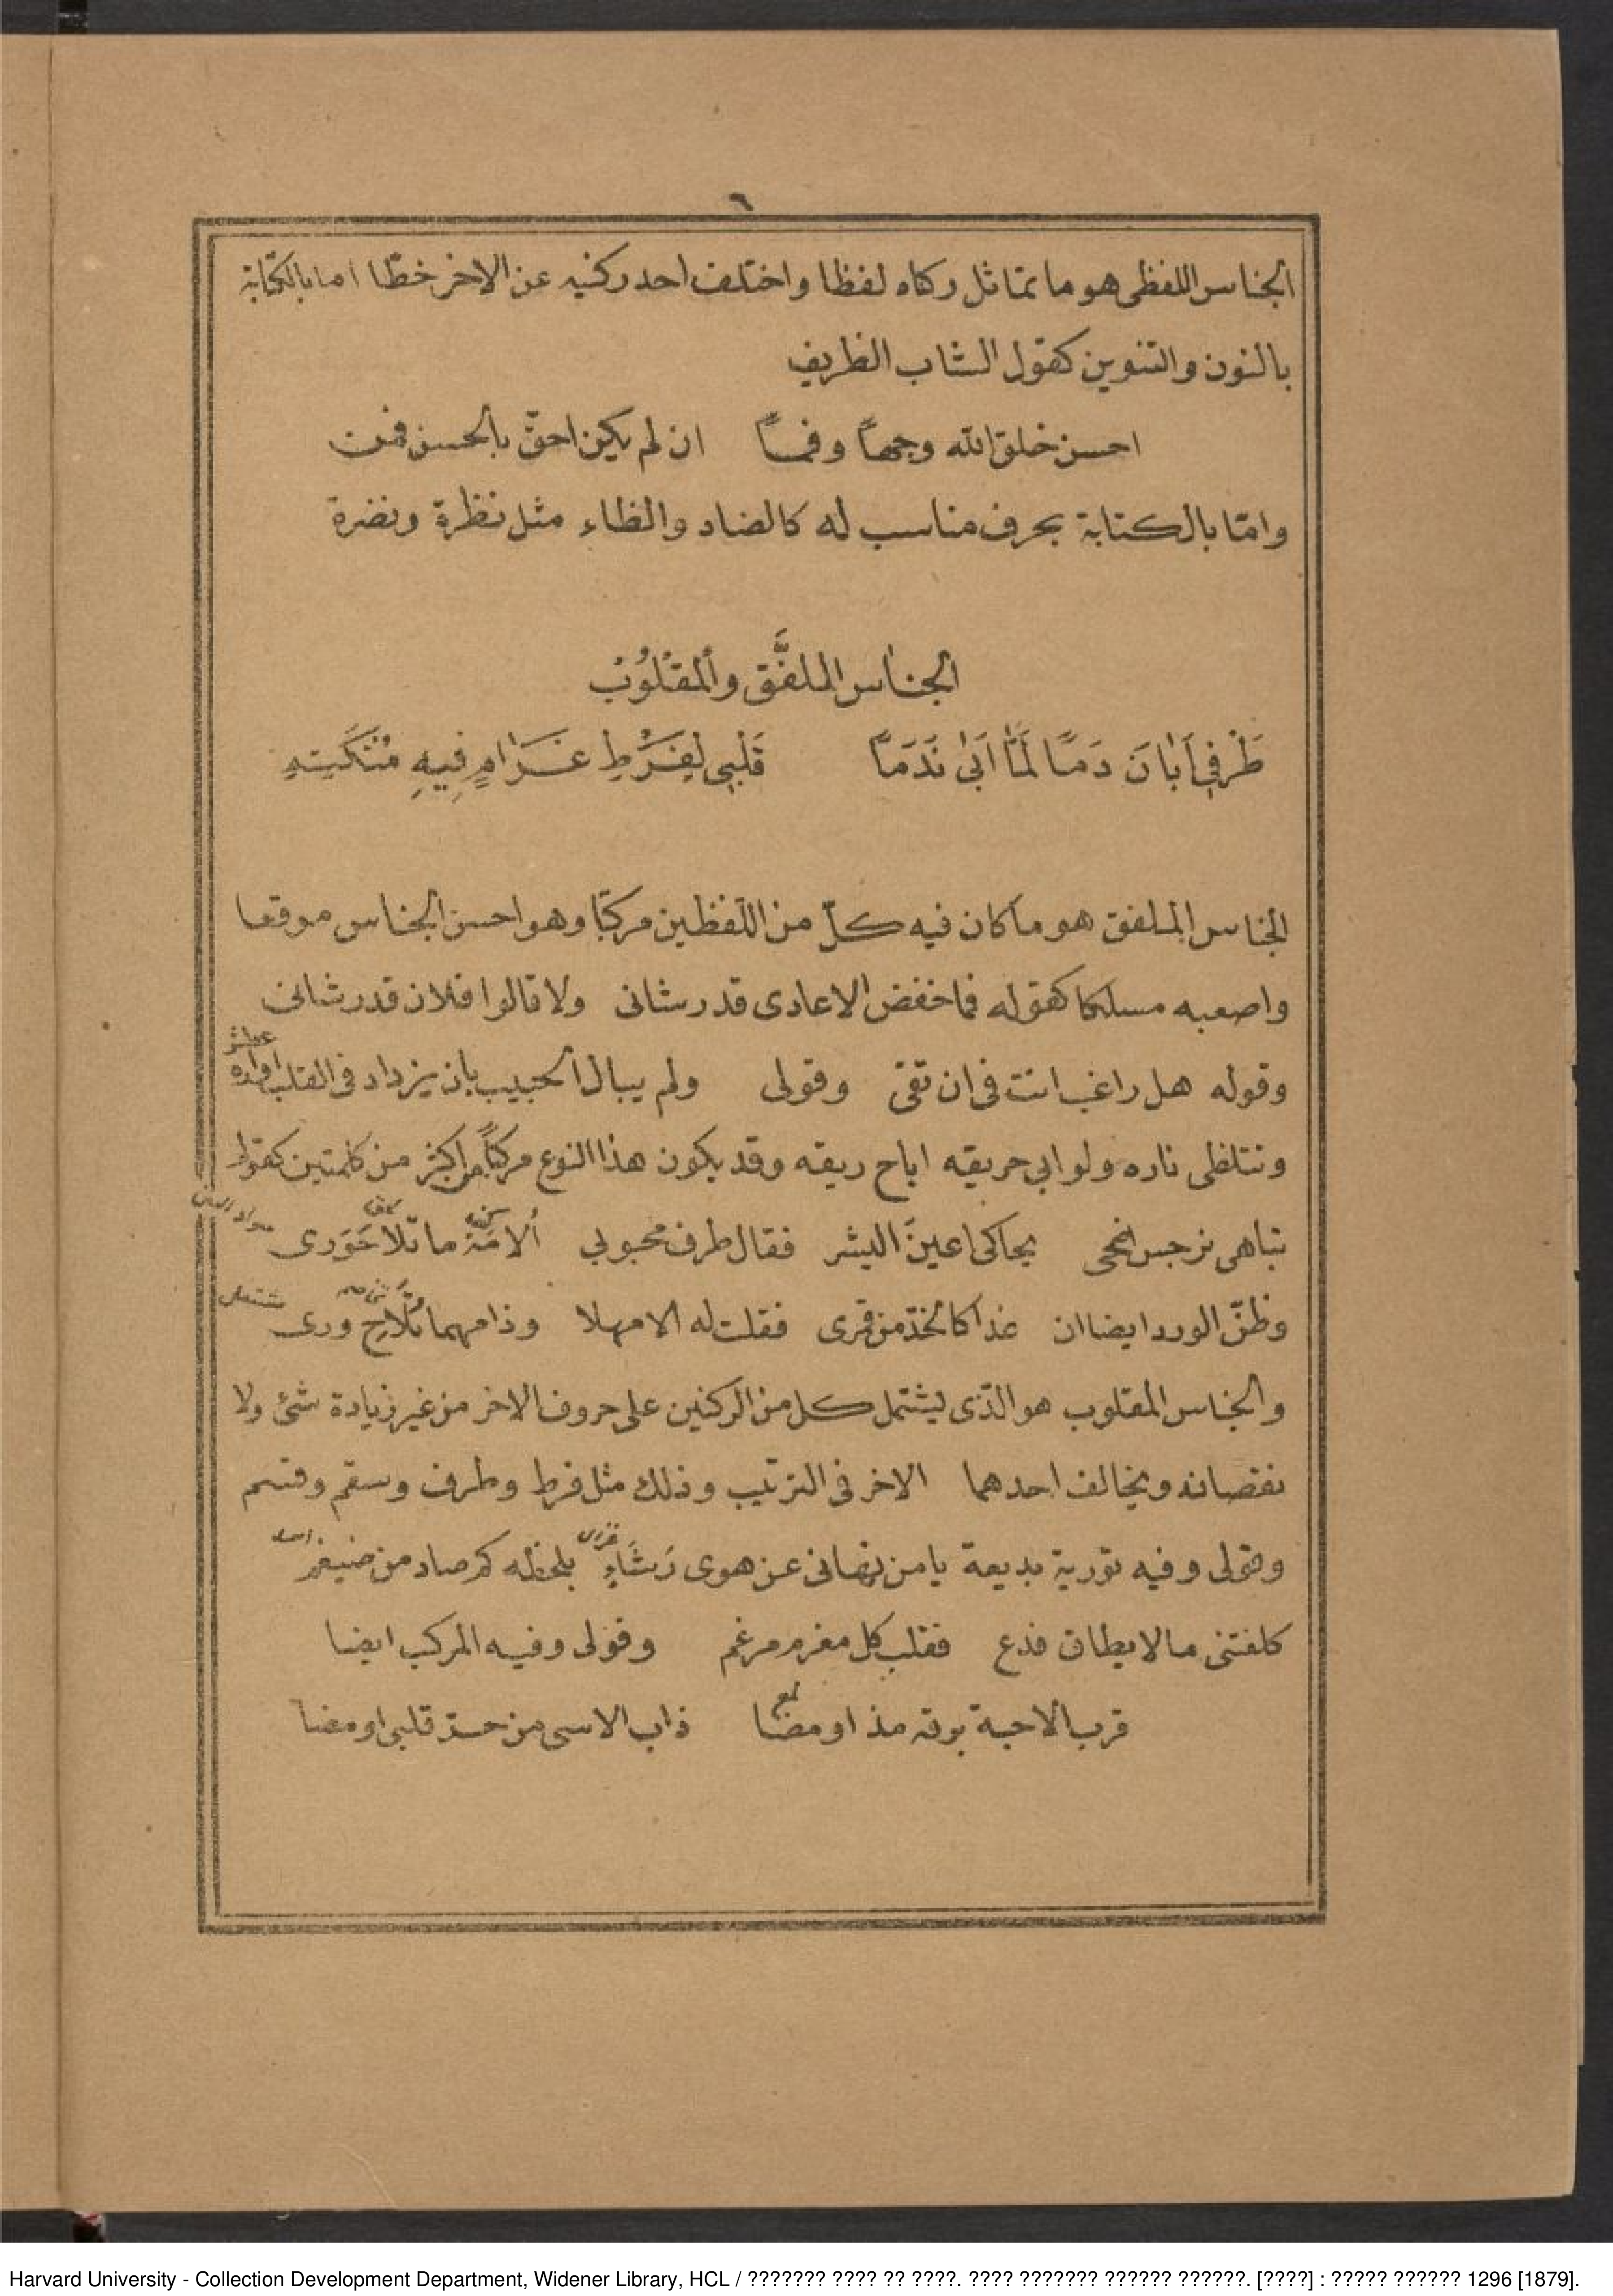 ٦
الجناس اللفظى هو ما تماثل ركناه لفظا واختلف احد ركنيه عن الاخر خطّا اما بالكتابة
بالنون والتنوين كقول الشاب الظريف
احسن خلق الله وجهاً وفماً ان لم يكن احقّ بالحسن فمن
وامّا بالكتابة بحرف مناسب له كالضاد والظاء مثل نظرة ونضرة
الجناس الملفَّق والمقْلُوُبْ
طَرْفِي اَبانَ دَمًا لَمَّا اَبى نَدَمًا قَلْبِى لِفَرْطِ غَرامٍ فِيهِ مُنْتَكَيتِهِ
الجناس الملفق هو ما كان فيه كلّ من اللفظين مركبًا وهو احسن الجناس موقعا
واصعبه مسلكا كقوله فما خفض الاعادى قدر شانى ولا قالوا فلان قد رشانى
وقوله هل راغب انت فى ان تقى وقولى ولم يبال الحبيب بان يزداد فى القلب اواره
وتتلظى ناره ولو ابى حريقه اباح ريقه وقد يكون هذا النوع مركباً من اكثر من كلمتين كقوله
تباهى نرجس اضحى يحاكى اعينَ البشر فقال طرف محبوبي ألامَنْ ما تلا حَوَرى
وظنّ الورد ايضا ان غدا كالخدّ من قمرى فقلت له الا مهلا وذا مهما تُلَاحِ ورى
والجناس المقلوب هو الذّى يشتمل كل من الركنين على حروف الاخر من غير زيادة شئ ولا
نقصانه ويخالف احدهما الاخر فى الترتيب وذلك مثل فرط وطرف وسقم وقسم
وقولى وفيه تورية بديعة يا من نهانى عن هوى رَشَاءٍ بلحظه كم صاد من ضيغم
كلفتنى ما لا يطاق فدع فقلب كل مغرم مرغم وقولى وفيه المركب ايضا
قرب الاحبة برقه مذ اومضا ذاب الاسى من حرّ قلبى او مضا
Harvard University - Collection Development Department, Widener Library, HCL / ??????? ???? ?? ????. ???? ??????? ?????? ??????. [????] : ????? ?????? 1296 [1879].